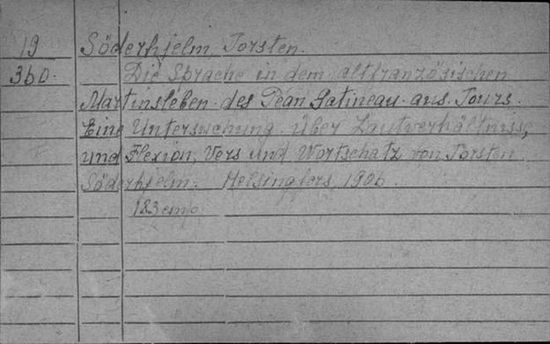 19 Söderhjelm, Torsten.
360. Die Sprache in dem altfranzösischen
Martinsleben des Péan Gatineau aus Tours.
Eine Untersuchung über Lautverhältniss,
und Flexion, Vers und Wortschatz von Torsten
Söderhjelm. Helsingfors, 1906